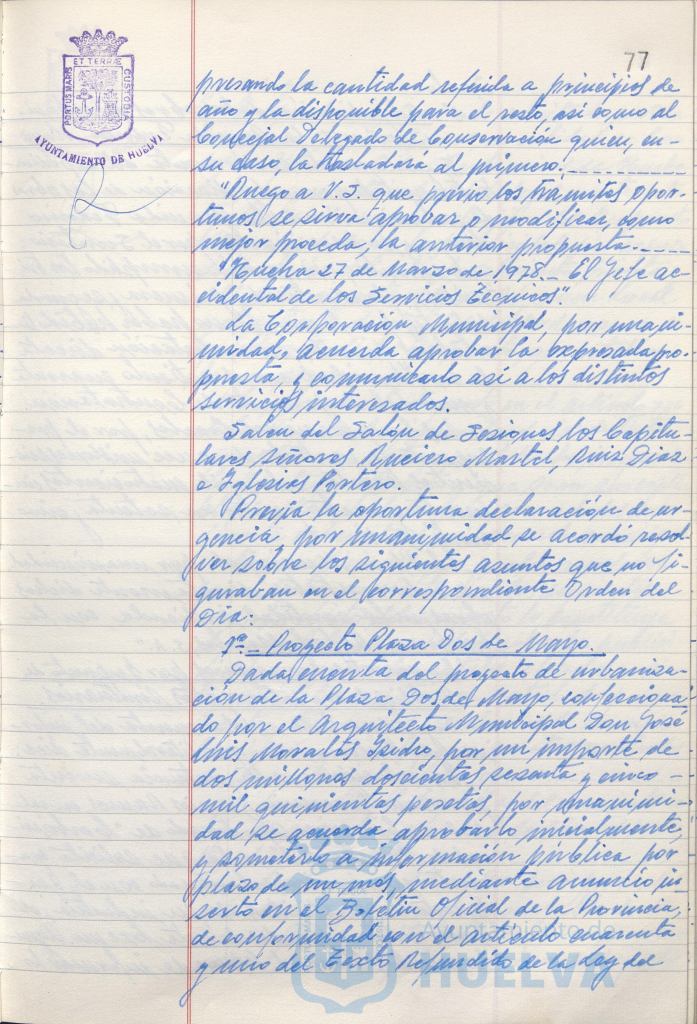 77
ET TERRÆ
PORTUS MARIS
CUSTODIA
AYUNTAMIENTO DE HUELVA
presando la cantidad referida a principios de
año y la disponible para el resto, así como al
Concejal Delegado de Conservación quien, en
su caso, la trasladará al primero.
"Ruego a V.I. que previo los trámites opor-
tunos se sirva aprobar o modificar, como
mejor proceda, la anterior propuesta.
"Huelva 27 de Marzo de 1978.- El Jefe ac-
cidental de los Servicios Técnicos".
La Corporación Municipal, por unani-
midad, acuerda aprobar la expresada pro-
puesta, y comunicarlo así a los distintos
servicios interesados.
Salen del Salón de Sesiones los Capitu-
lares señores Ruciero Martel, Ruiz Díaz
e Iglesias Portero.
Previa la oportuna declaración de ur-
gencia, por unanimidad se acordó resol-
ver sobre los siguientes asuntos que no fi-
guraban en el correspondiente Orden del
Día:
1º.- Proyecto Plaza Dos de Mayo.
Dada cuenta del proyecto de urbaniza-
ción de la Plaza Dos de Mayo, confecciona-
do por el Arquitecto Municipal Don José
Luis Morales Isidro, por un importe de
dos millones doscientas sesenta y cinco
mil quinientas pesetas, por unanimi-
dad se acuerda aprobarlo inicialmente,
y someterlo a información pública por
plazo de un mes, mediante anuncio in-
serto en el Boletín Oficial de la Provincia,
de conformidad con el artículo cuarenta
y uno del Texto Refundido de la Ley del
Ayuntamiento de
HUELVA